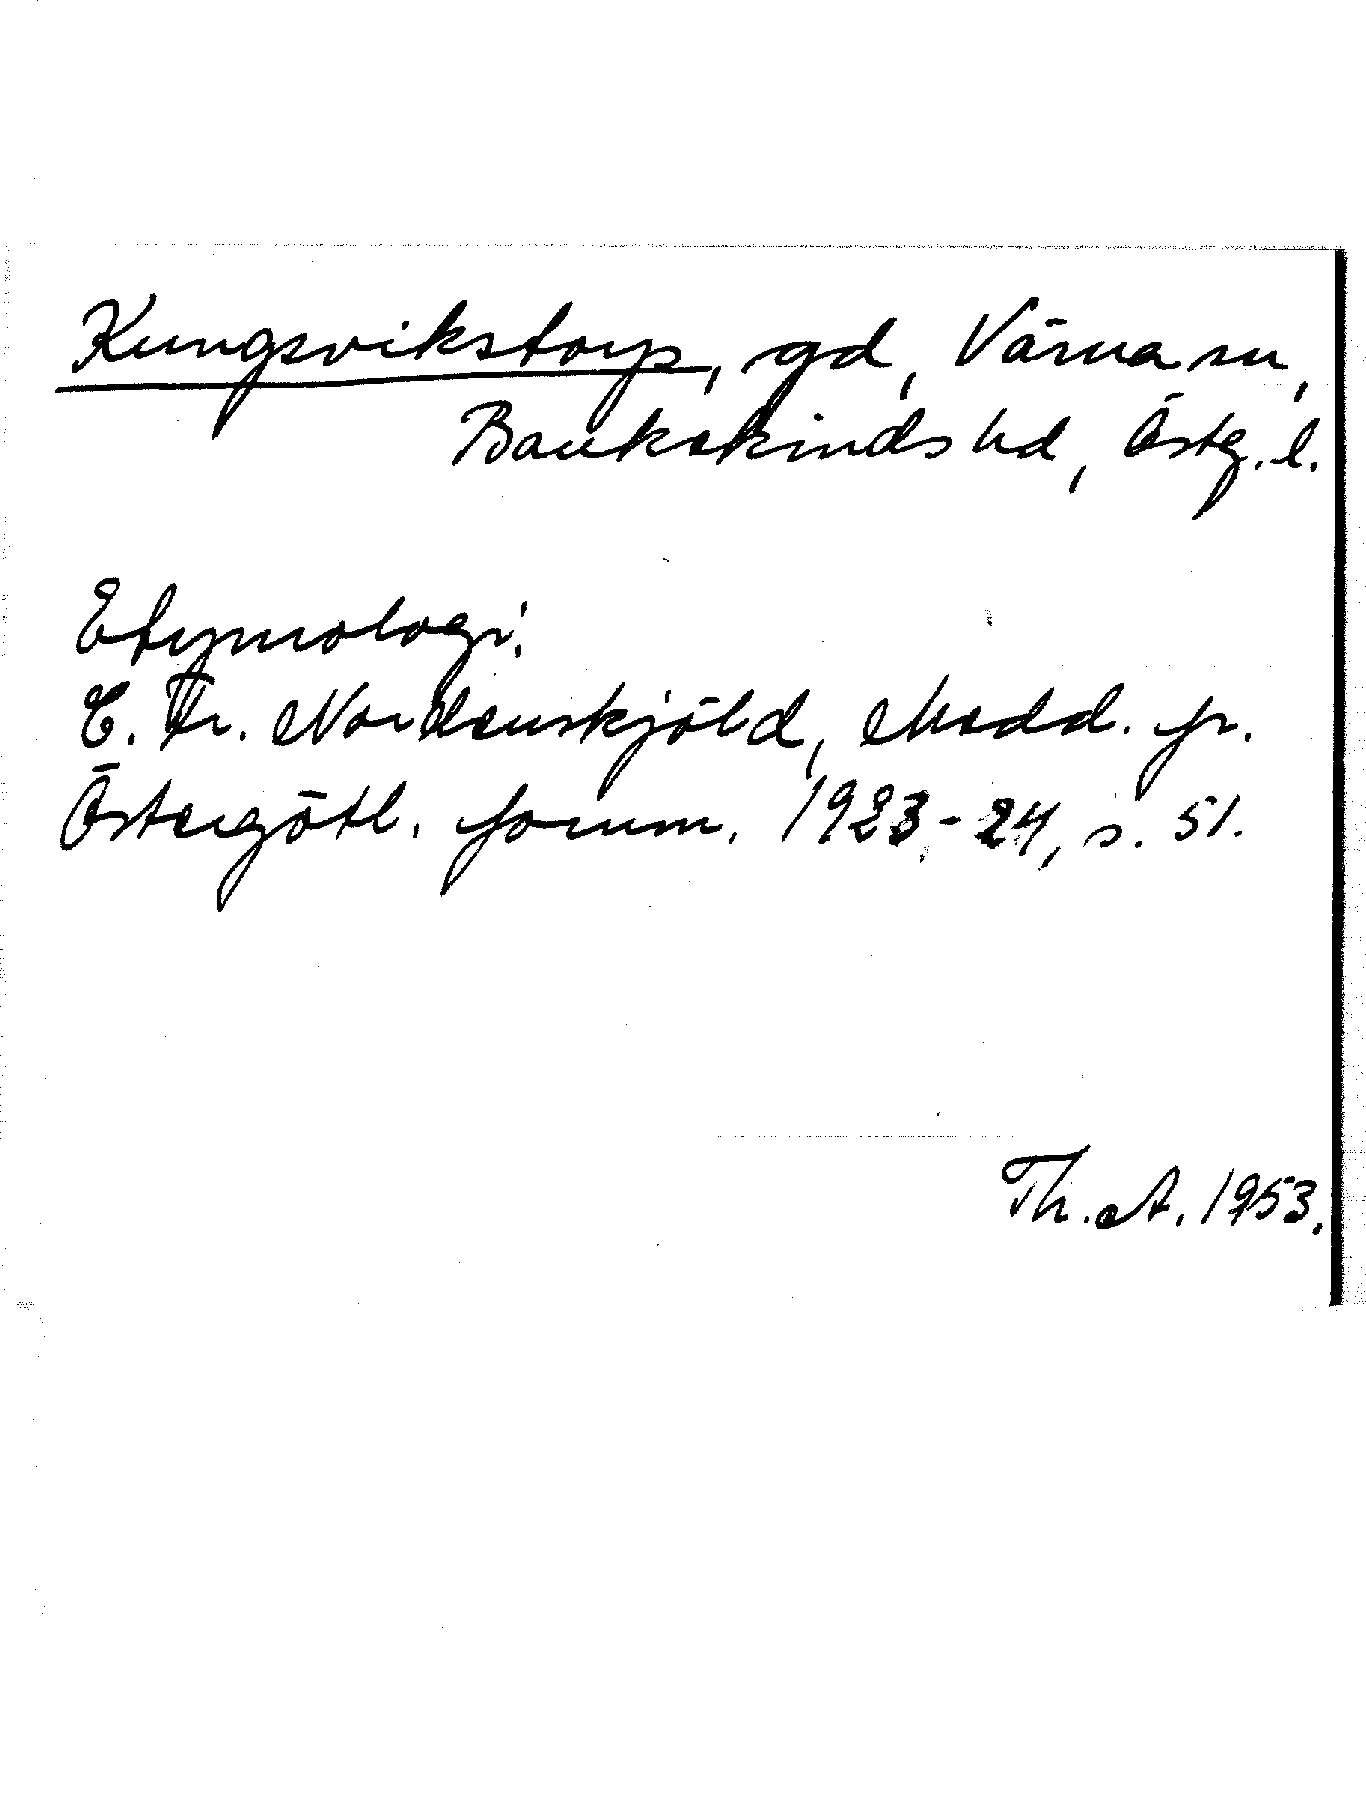 Kungsvikstorp, gd, Värna sn,
Bankekinds hd, Östg. l.
Etymologi:
C. Fr. Nordenskjöld, Medd. fr.
Östergötl. fornm. 1923-24, s. 51.
Th. A. 1953.